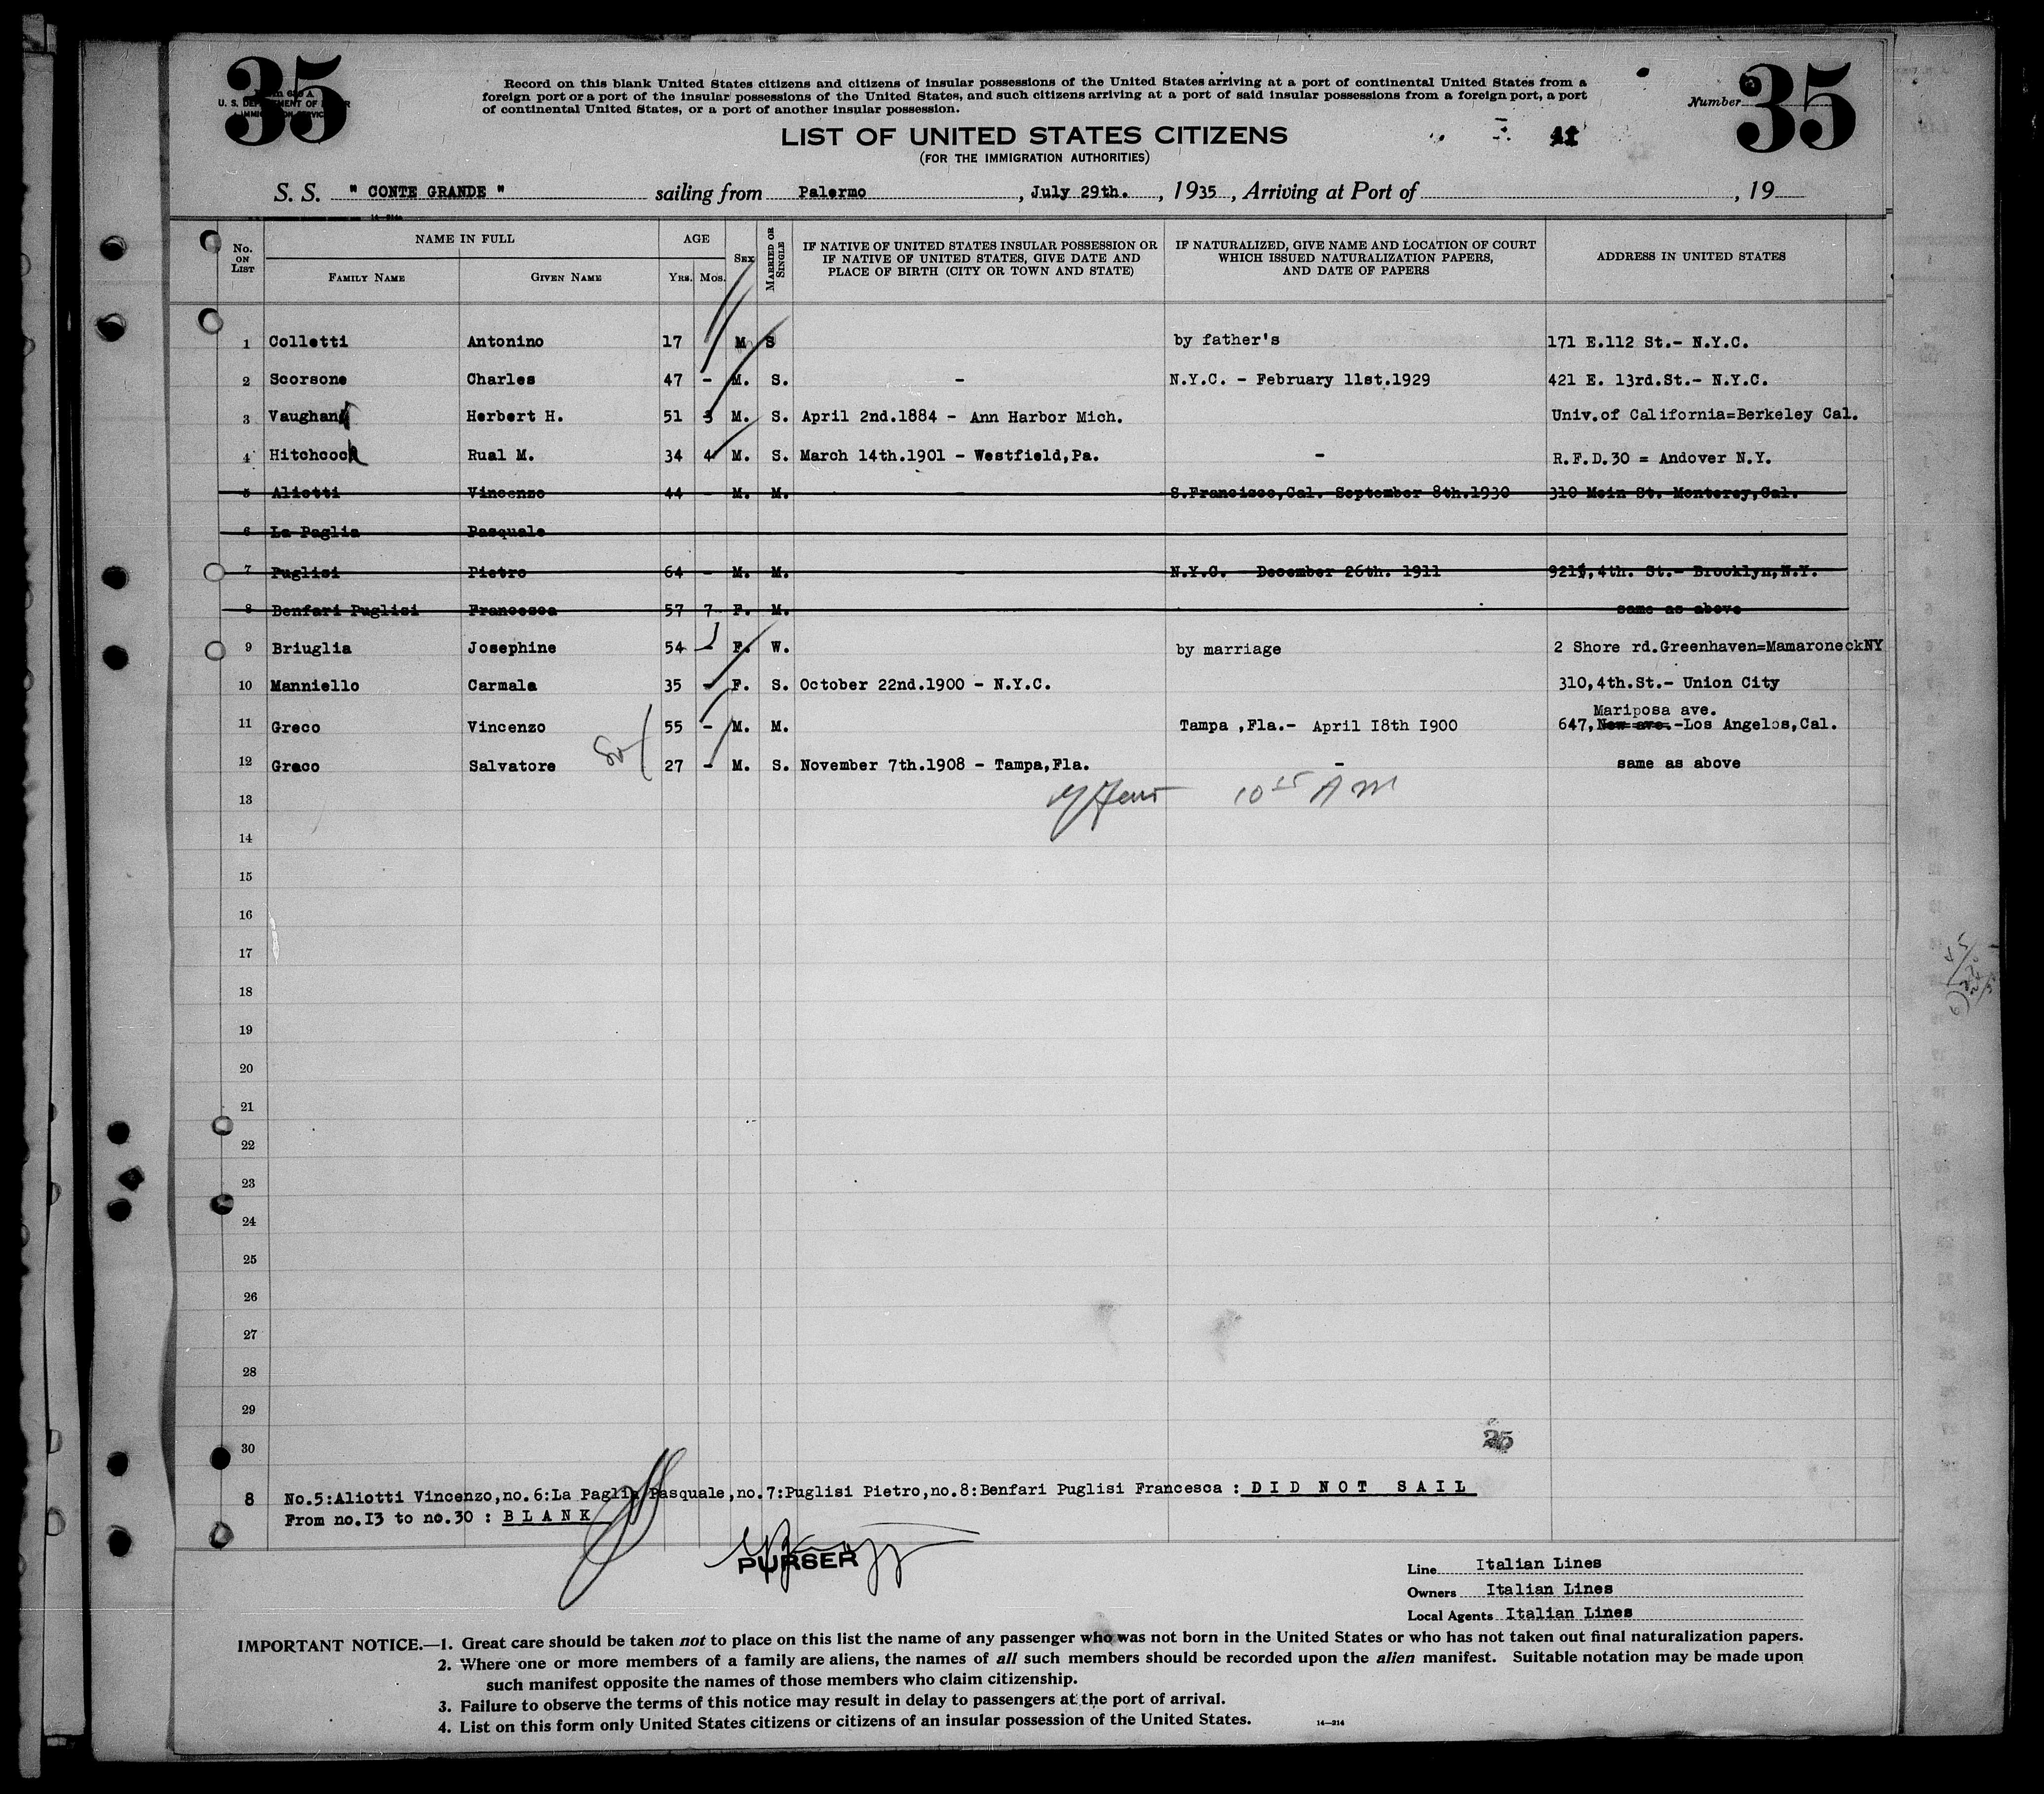 35
U. S. DEPARTMENT OF LABOR
IMMIGRATION SERVICE
Record on this blank United States citizens and citizens of insular possessions of the United States arriving at a port of continental United States from a
foreign port or a port of the insular possessions of the United States, and such citizens arriving at a port of said insular possessions from a foreign port, a port
of continental United States, or a port of another insular possession.
Number 35
LIST OF UNITED STATES CITIZENS
(FOR THE IMMIGRATION AUTHORITIES)
S. S. " CONTE GRANDE " sailing from Palermo , July 29th. , 1935 , Arriving at Port of , 19
No. ON LIST NAME IN FULL FAMILY NAME GIVEN NAME AGE YRS. MOS. SEX MARRIED OR SINGLE IF NATIVE OF UNITED STATES INSULAR POSSESSION OR IF NATIVE OF UNITED STATES, GIVE DATE AND PLACE OF BIRTH (CITY OR TOWN AND STATE) IF NATURALIZED, GIVE NAME AND LOCATION OF COURT WHICH ISSUED NATURALIZATION PAPERS, AND DATE OF PAPERS ADDRESS IN UNITED STATES
1 Colletti Antonino 17 M S by father's 171 E.112 St.- N.Y.C.
2 Scorsone Charles 47 - M. S. - N.Y.C. - February 11st.1929 421 E. 13rd.St.- N.Y.C.
3 Vaughan Herbert H. 51 3 M. S. April 2nd.1884 - Ann Harbor Mich. Univ.of California=Berkeley Cal.
4 Hitchcock Rual M. 34 4 M. S. March 14th.1901 - Westfield,Pa. - R.F.D.30 = Andover N.Y.
5 Aliotti Vincenzo 44 - M. M. S.Francisco,Cal. September 8th.1930 310 Mein St. Monterey,Cal.
6 La Paglia Pasquale
7 Puglisi Pietro 64 - M. M. - N.Y.C. - December 26th. 1911 921,4th. St.- Brooklyn,N.Y.
8 Benfari Puglisi Francesca 57 7 F. M. same as above
9 Briuglia Josephine 54 - F. W. by marriage 2 Shore rd.Greenhaven=MamaroneckNY
10 Manniello Carmala 35 - F. S. October 22nd.1900 - N.Y.C. 310,4th.St.- Union City
Mariposa ave.
11 Greco Vincenzo 55 - M. M. Tampa ,Fla.- April I8th I900 647,New ave.-Los Angelos,Cal.
12 Greco Salvatore 27 - M. S. November 7th.1908 - Tampa,Fla. - same as above
13 10 15 A M
14
15
16
17
18
19
20
21
22
23
24
25
26
27
28
29
30
25
8 No.5:Aliotti Vincenzo,no.6:La Paglia Pasquale,no.7:Puglisi Pietro,no.8:Benfari Puglisi Francesca : DID NOT SAIL
From no.I3 to no.30 : BLANK
PURSER
Line Italian Lines
Owners Italian Lines
Local Agents Italian Lines
IMPORTANT NOTICE.—1. Great care should be taken not to place on this list the name of any passenger who was not born in the United States or who has not taken out final naturalization papers.
2. Where one or more members of a family are aliens, the names of all such members should be recorded upon the alien manifest. Suitable notation may be made upon
such manifest opposite the names of those members who claim citizenship.
3. Failure to observe the terms of this notice may result in delay to passengers at the port of arrival.
4. List on this form only United States citizens or citizens of an insular possession of the United States.
14—314